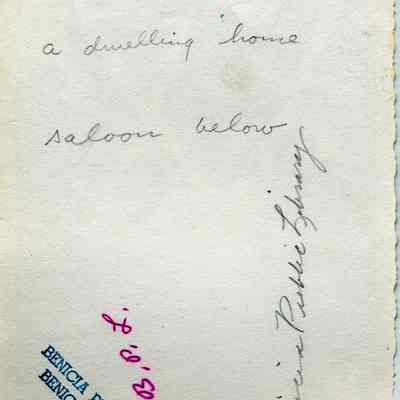 a dwelling home
saloon below
Public Library
B. P. L.
BENICIA